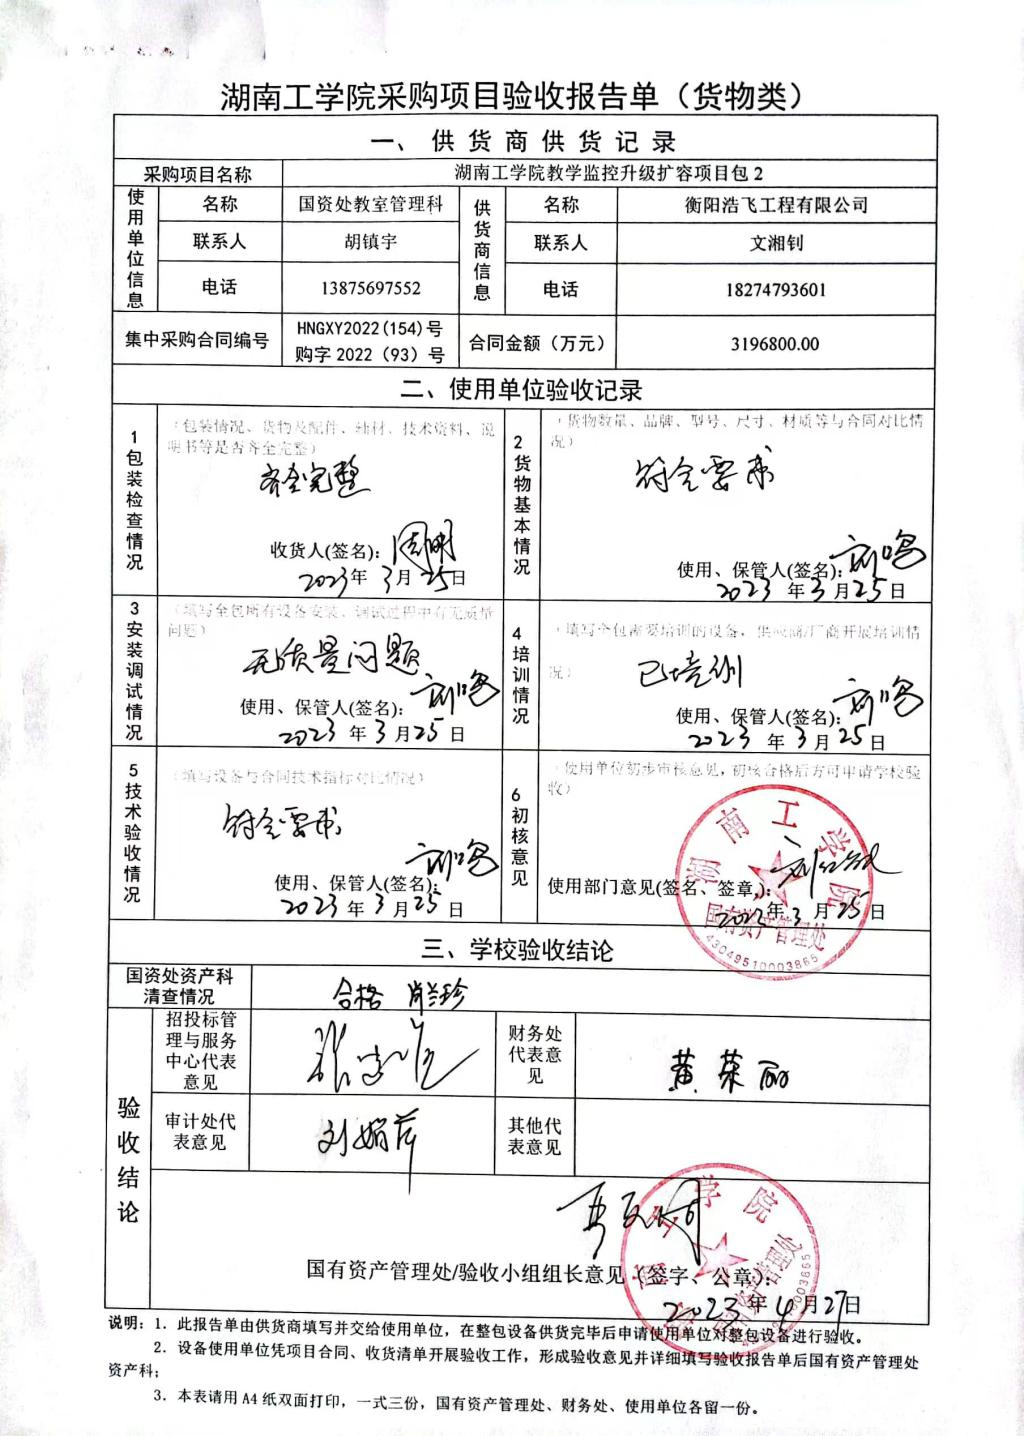 湖南工学院采购项目验收报告单（货物类）
一、供货商供货记录
采购项目名称 湖南工学院教学监控升级扩容项目包 2
使用单位信息 名称 国资处教室管理科 供货商信息 名称 衡阳浩飞工程有限公司
联系人 胡镇宇 联系人 文湘钊
电话 13875697552 电话 18274793601
集中采购合同编号 HNGXY2022(154)号 合同金额（万元） 3196800.00
购字 2022（93）号
二、使用单位验收记录
1包装检查情况
（包装情况、货物及配件、辅材、技术资料、说
明书等是否齐全完整）
齐全完整
收货人(签名)：周明
2023年 3月 25日
2货物基本情况
（货物数量、品牌、型号、尺寸、材质等与合同对比情
况）
符合要求
使用、保管人(签名)：
2023 年 3月 25日
3安装调试情况
（填写全包所有设备安装、调试过程中有无质量
问题）
无质量问题
使用、保管人(签名)：
2023 年 3月 25日
4培训情况
（填写全包需要培训的设备，供应商/厂商开展培训情
况）
已培训
使用、保管人(签名)：
2023 年 3月 25日
5技术验收情况
（填写设备与合同技术指标对比情况）
符合要求
使用、保管人(签名)：
2023 年 3月 25日
6初核意见
（使用单位初步审核意见，初核合格后方可申请学校验
收）
使用部门意见(签名、签章)：
2023年 3月 25日
湖南工学院
国有资产管理处
43049510003865
三、学校验收结论
国资处资产科
清查情况
合格 肖兰珍
验收结论
招投标管
理与服务
中心代表
意见
财务处
代表意
见
黄荣丽
审计处代
表意见
刘娟萍
其他代
表意见
国有资产管理处/验收小组组长意见（签字、公章）：
2023年 4月 27日
湖南工学院
国有资产管理处
43049510003865
说明：1．此报告单由供货商填写并交给使用单位，在整包设备供货完毕后申请使用单位对整包设备进行验收。
2．设备使用单位凭项目合同、收货清单开展验收工作，形成验收意见并详细填写验收报告单后国有资产管理处
资产科；
3．本表请用 A4 纸双面打印，一式三份，国有资产管理处、财务处、使用单位各留一份。